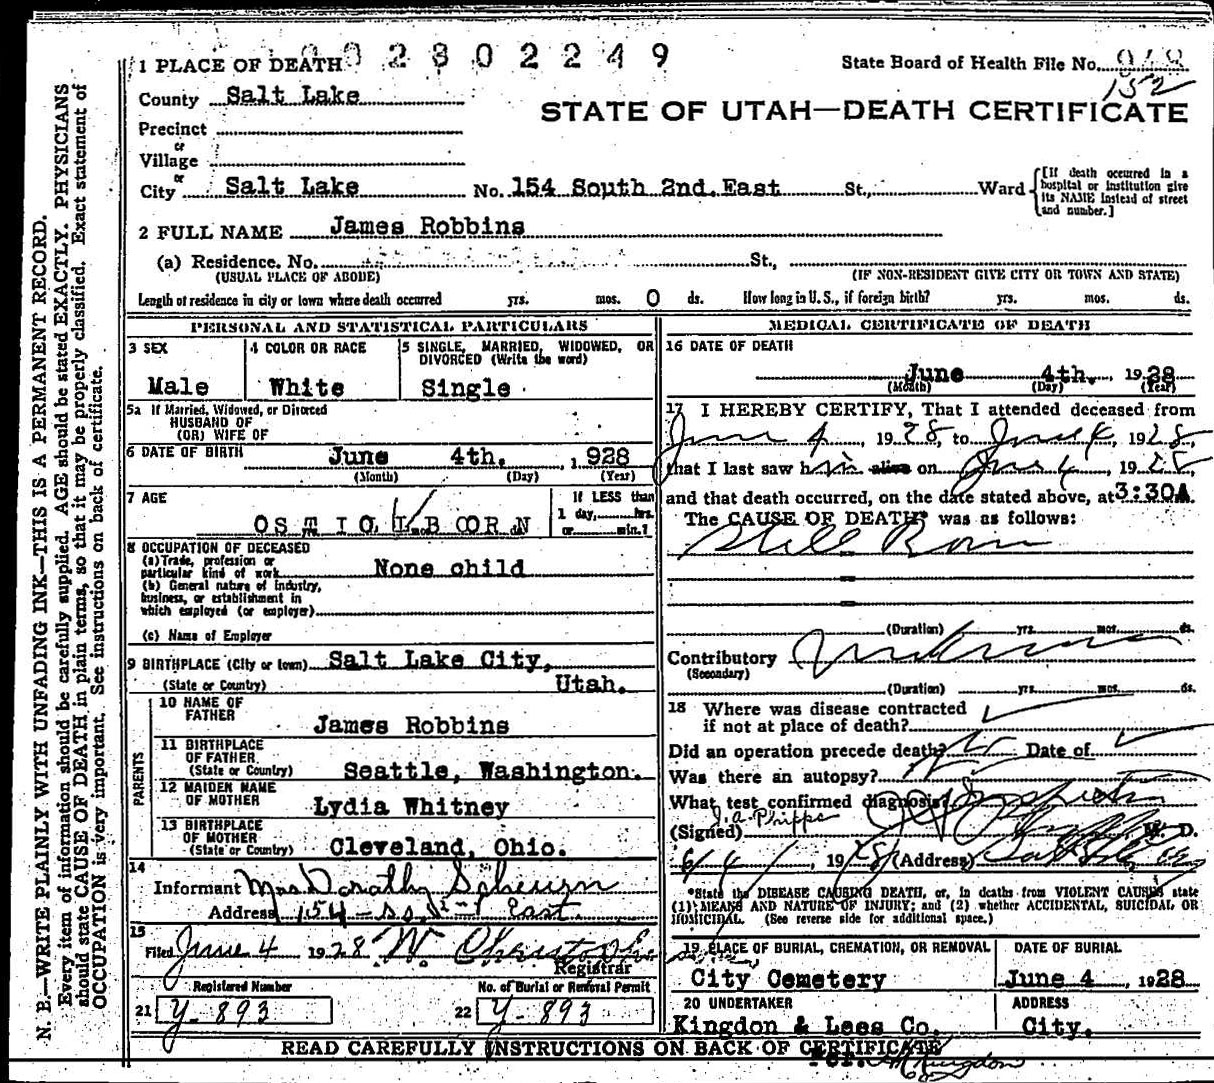 1 PLACE OF DEATH 002802249 State Board of Health File No. 948
152
County Salt Lake
STATE OF UTAH—DEATH CERTIFICATE
Precinct
or
Village
or
City Salt Lake No. 154 South 2nd. East St., Ward [If death occurred in a hospital or institution give its NAME instead of street and number.]
2 FULL NAME James Robbins
(a) Residence. No. St.,
(USUAL PLACE OF ABODE) (IF NON-RESIDENT GIVE CITY OR TOWN AND STATE)
Length of residence in city or town where death occurred yrs. mos. 0 ds. How long in U.S., if foreign birth? yrs. mos. ds.
PERSONAL AND STATISTICAL PARTICULARS
3 SEX
Male
4 COLOR OR RACE
White
5 SINGLE, MARRIED, WIDOWED, OR
DIVORCED (Write the word)
Single
5a If Married, Widowed, or Divorced
HUSBAND OF
(OR) WIFE OF
6 DATE OF BIRTH June 4th. , 1928
(Month) (Day) (Year)
7 AGE
O S T I O L L B O R N
If LESS than
1 day, hrs.
or min.?
8 OCCUPATION OF DECEASED
(a) Trade, profession or
particular kind of work None child
(b) General nature of industry,
business, or establishment in
which employed (or employer)
(c) Name of Employer
9 BIRTHPLACE (City or town) Salt Lake City,
(State or Country) Utah.
PARENTS
10 NAME OF
FATHER James Robbins
11 BIRTHPLACE
OF FATHER
(State or Country) Seattle, Washington.
12 MAIDEN NAME
OF MOTHER Lydia Whitney
13 BIRTHPLACE
OF MOTHER
(State or Country) Cleveland, Ohio.
14
Informant Mrs Dorathy
Address 154 - So. 2nd East.
15
Filed June 4 1928 W. Christoph
Registrar
Registered Number No. of Burial or Removal Permit
21 Y-893 22 Y-893
MEDICAL CERTIFICATE OF DEATH
16 DATE OF DEATH
June 4th. 1928
(Month) (Day) (Year)
17 I HEREBY CERTIFY, That I attended deceased from
June 4, 1928, to June 4, 1928,
that I last saw him alive on June 4, 1928
and that death occurred, on the date stated above, at 3:30A.
The CAUSE OF DEATH* was as follows:
Still Born
(Duration) yrs. mos. ds.
Contributory Unknown
(Secondary)
(Duration) yrs. mos. ds.
18 Where was disease contracted
if not at place of death?
Did an operation precede death? No Date of
Was there an autopsy? No
What test confirmed diagnosis? Inspection
J. A. Phipps
(Signed) M. D.
6/4, 1928 (Address) Salt Lake City
*State the DISEASE CAUSING DEATH, or, in deaths from VIOLENT CAUSES state
(1) MEANS AND NATURE OF INJURY; and (2) whether ACCIDENTAL, SUICIDAL OR
HOMICIDAL. (See reverse side for additional space.)
19 PLACE OF BURIAL, CREMATION, OR REMOVAL DATE OF BURIAL
City Cemetery June 4, 1928
20 UNDERTAKER ADDRESS
Kingdon & Lees Co. City.
READ CAREFULLY INSTRUCTIONS ON BACK OF CERTIFICATE
Per. Kingdon
N. B.—WRITE PLAINLY WITH UNFADING INK—THIS IS A PERMANENT RECORD.
Every item of information should be carefully supplied. AGE should be stated EXACTLY. PHYSICIANS
should state CAUSE OF DEATH in plain terms, so that it may be properly classified. Exact statement of
OCCUPATION is very important. See instructions on back of certificate.